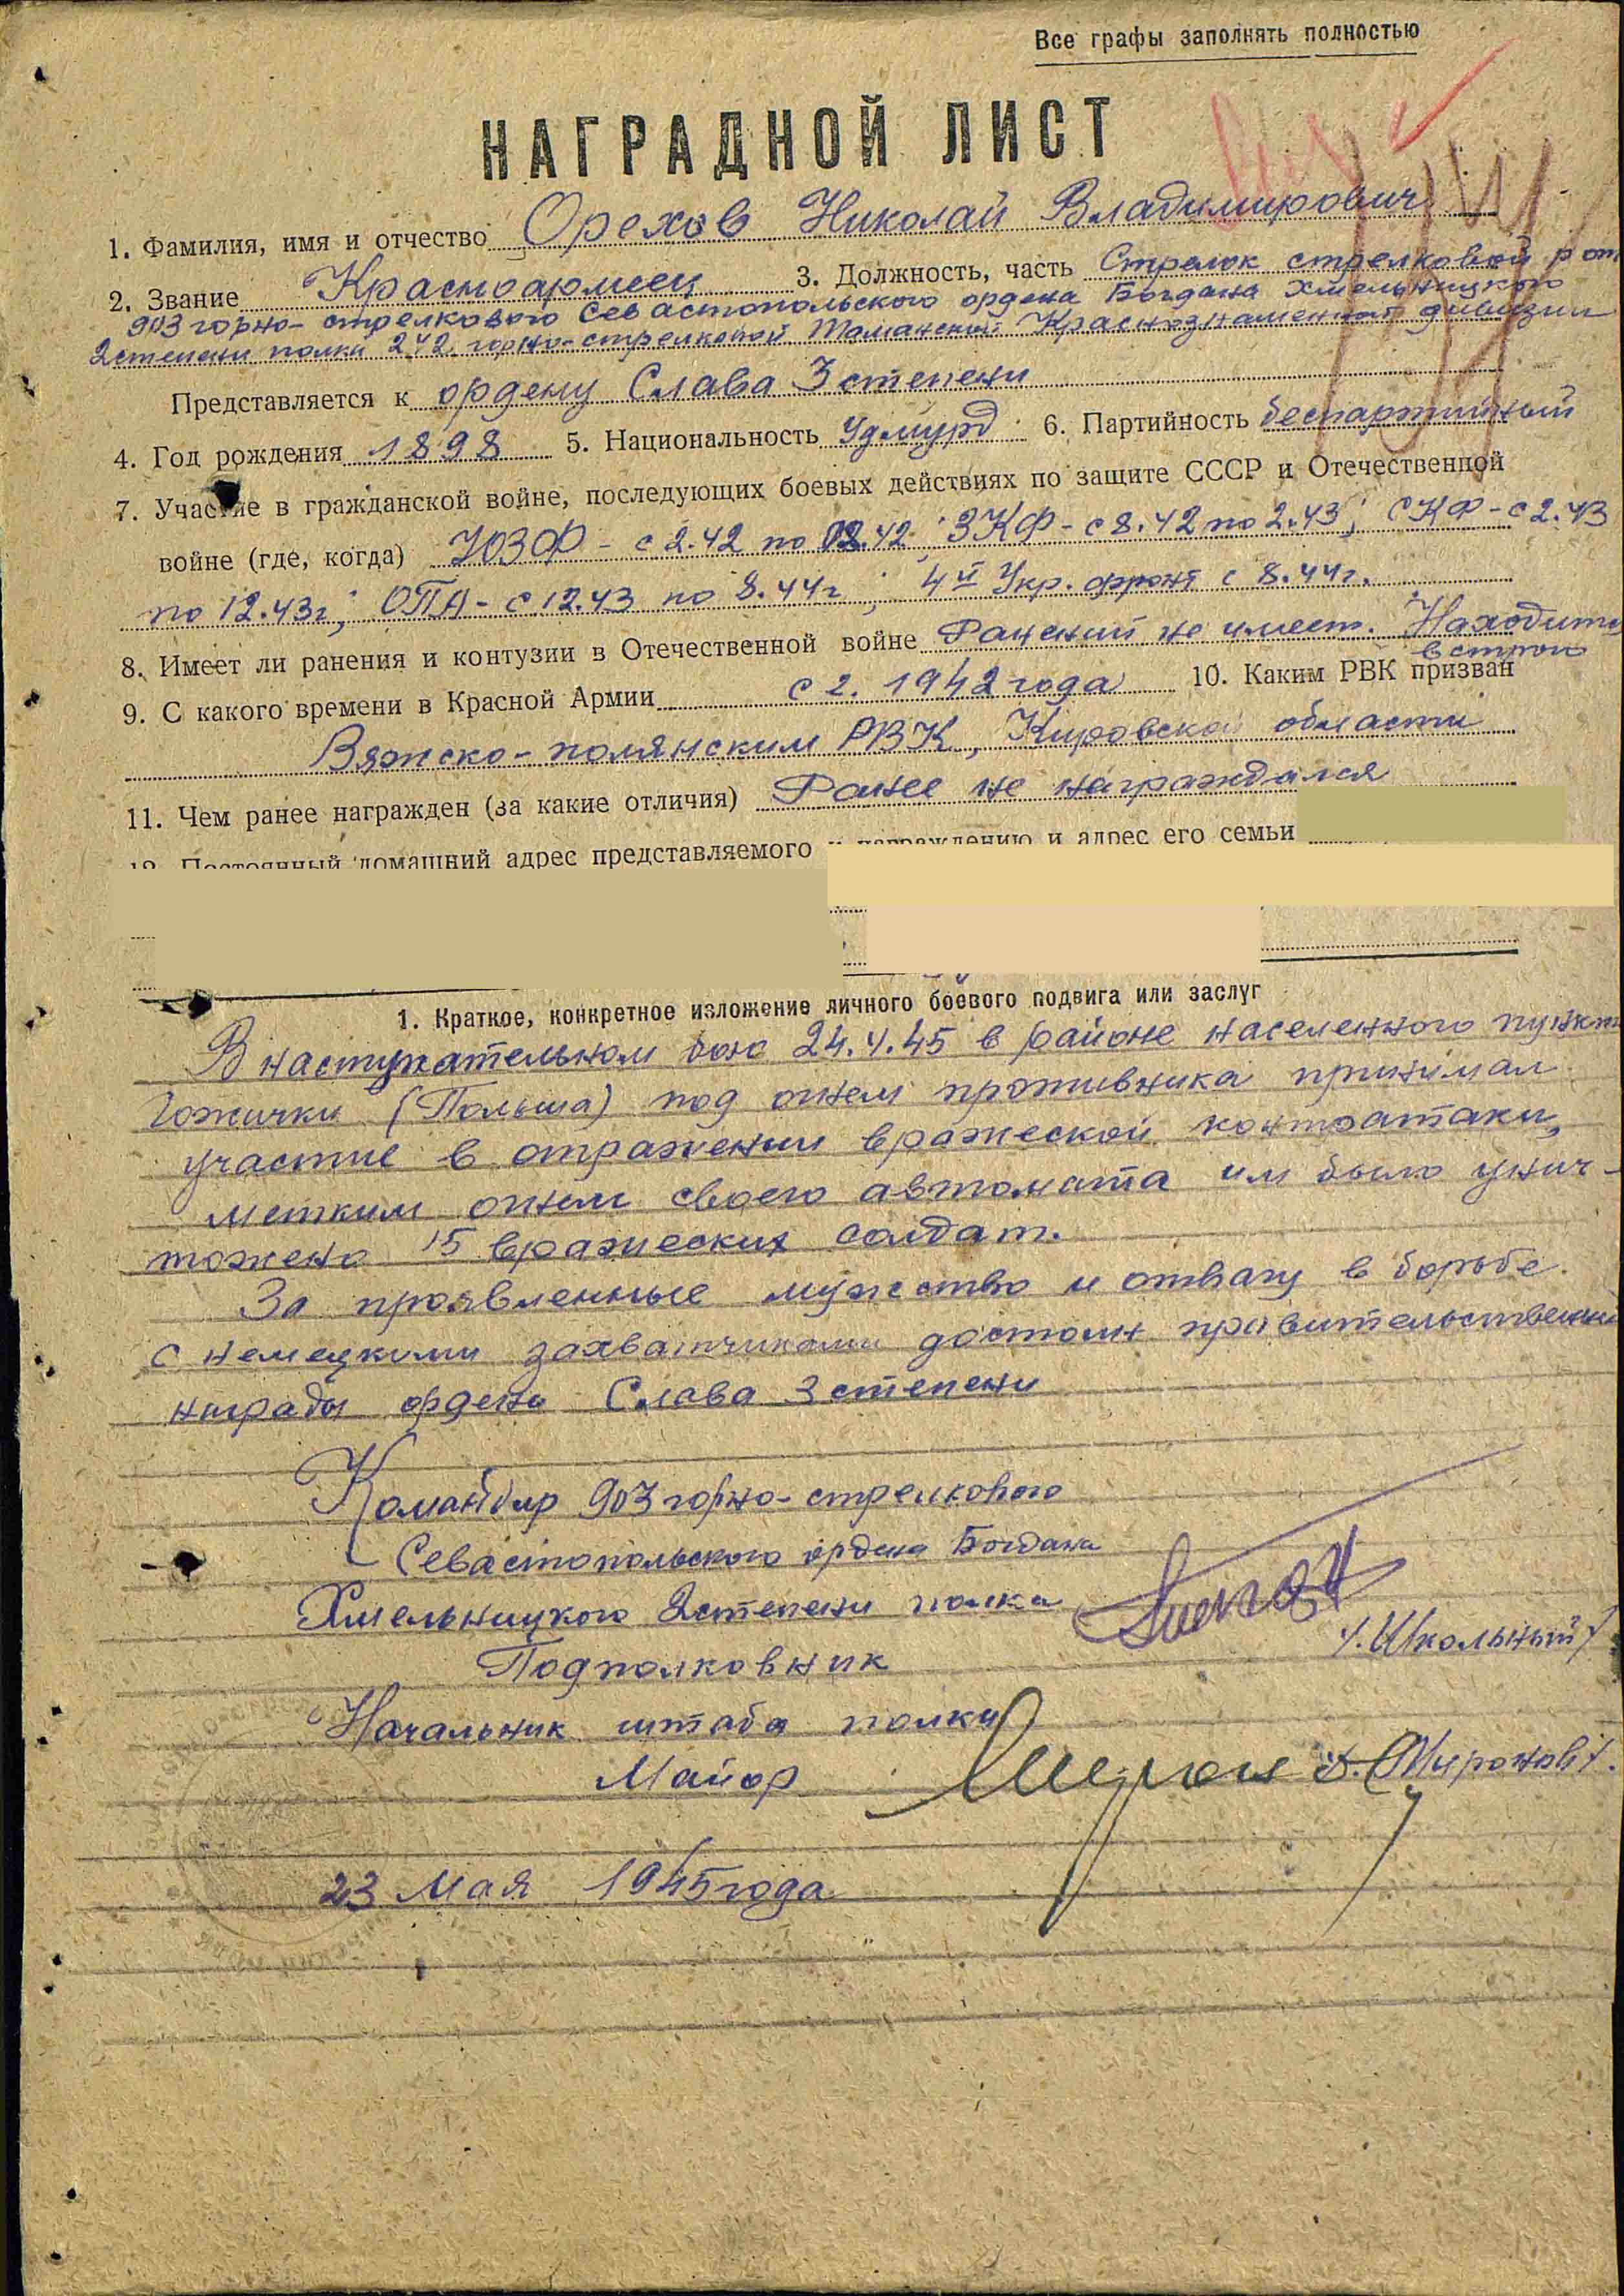 Все графы заполнять полностью
НАГРАДНОЙ ЛИСТ
1. Фамилия, имя и отчество Орехов Николай Владимирович
2. Звание Красноармеец 3. Должность, часть Стрелок стрелковой рот
903 горно-стрелкового Севастопольского ордена Богдана Хмельницкого
2 степени полка 242 горно-стрелковой Таманской Краснознаменной дивизии
Представляется к ордену Слава 3 степени
4. Год рождения 1898 5. Национальность Удмурд 6. Партийность беспартийный
7. Участие в гражданской войне, последующих боевых действиях по защите СССР и Отечественной
войне (где, когда) ЮЗФ - с 2.42 по 08.42; ЗКФ - с 8.42 по 2.43; СКФ - с 2.43
по 12.43г; ОПА - с 12.43 по 8.44г; 4й Укр. фронт с 8.44г.
8. Имеет ли ранения и контузии в Отечественной войне Ранений не имеет. Находится
в строю
9. С какого времени в Красной Армии с 2. 1942 года 10. Каким РВК призван
Вятско-полянским РВК, Кировской области
11. Чем ранее награжден (за какие отличия) Ранее не награждался
12. Постоянный домашний адрес представляемого к награждению и адрес его семьи
1. Краткое, конкретное изложение личного боевого подвига или заслуг
В наступательном бою 24.4.45 в районе населенного пункт
Гожички (Польша) под огнем противника принимал
участие в отражении вражеской контратаки,
метким огнем своего автомата им было унич-
тожено 15 вражеских солдат.
За проявленные мужество и отвагу в борьбе
с немецкими захватчиками достоин правительственной
награды ордена Слава 3 степени
Командир 903 горно-стрелкового
Севастопольского ордена Богдана
Хмельницкого 2 степени полка
Подполковник
/. Школьный /
Начальник штаба полка
Майор
Миронов /.
23 Мая 1945 года